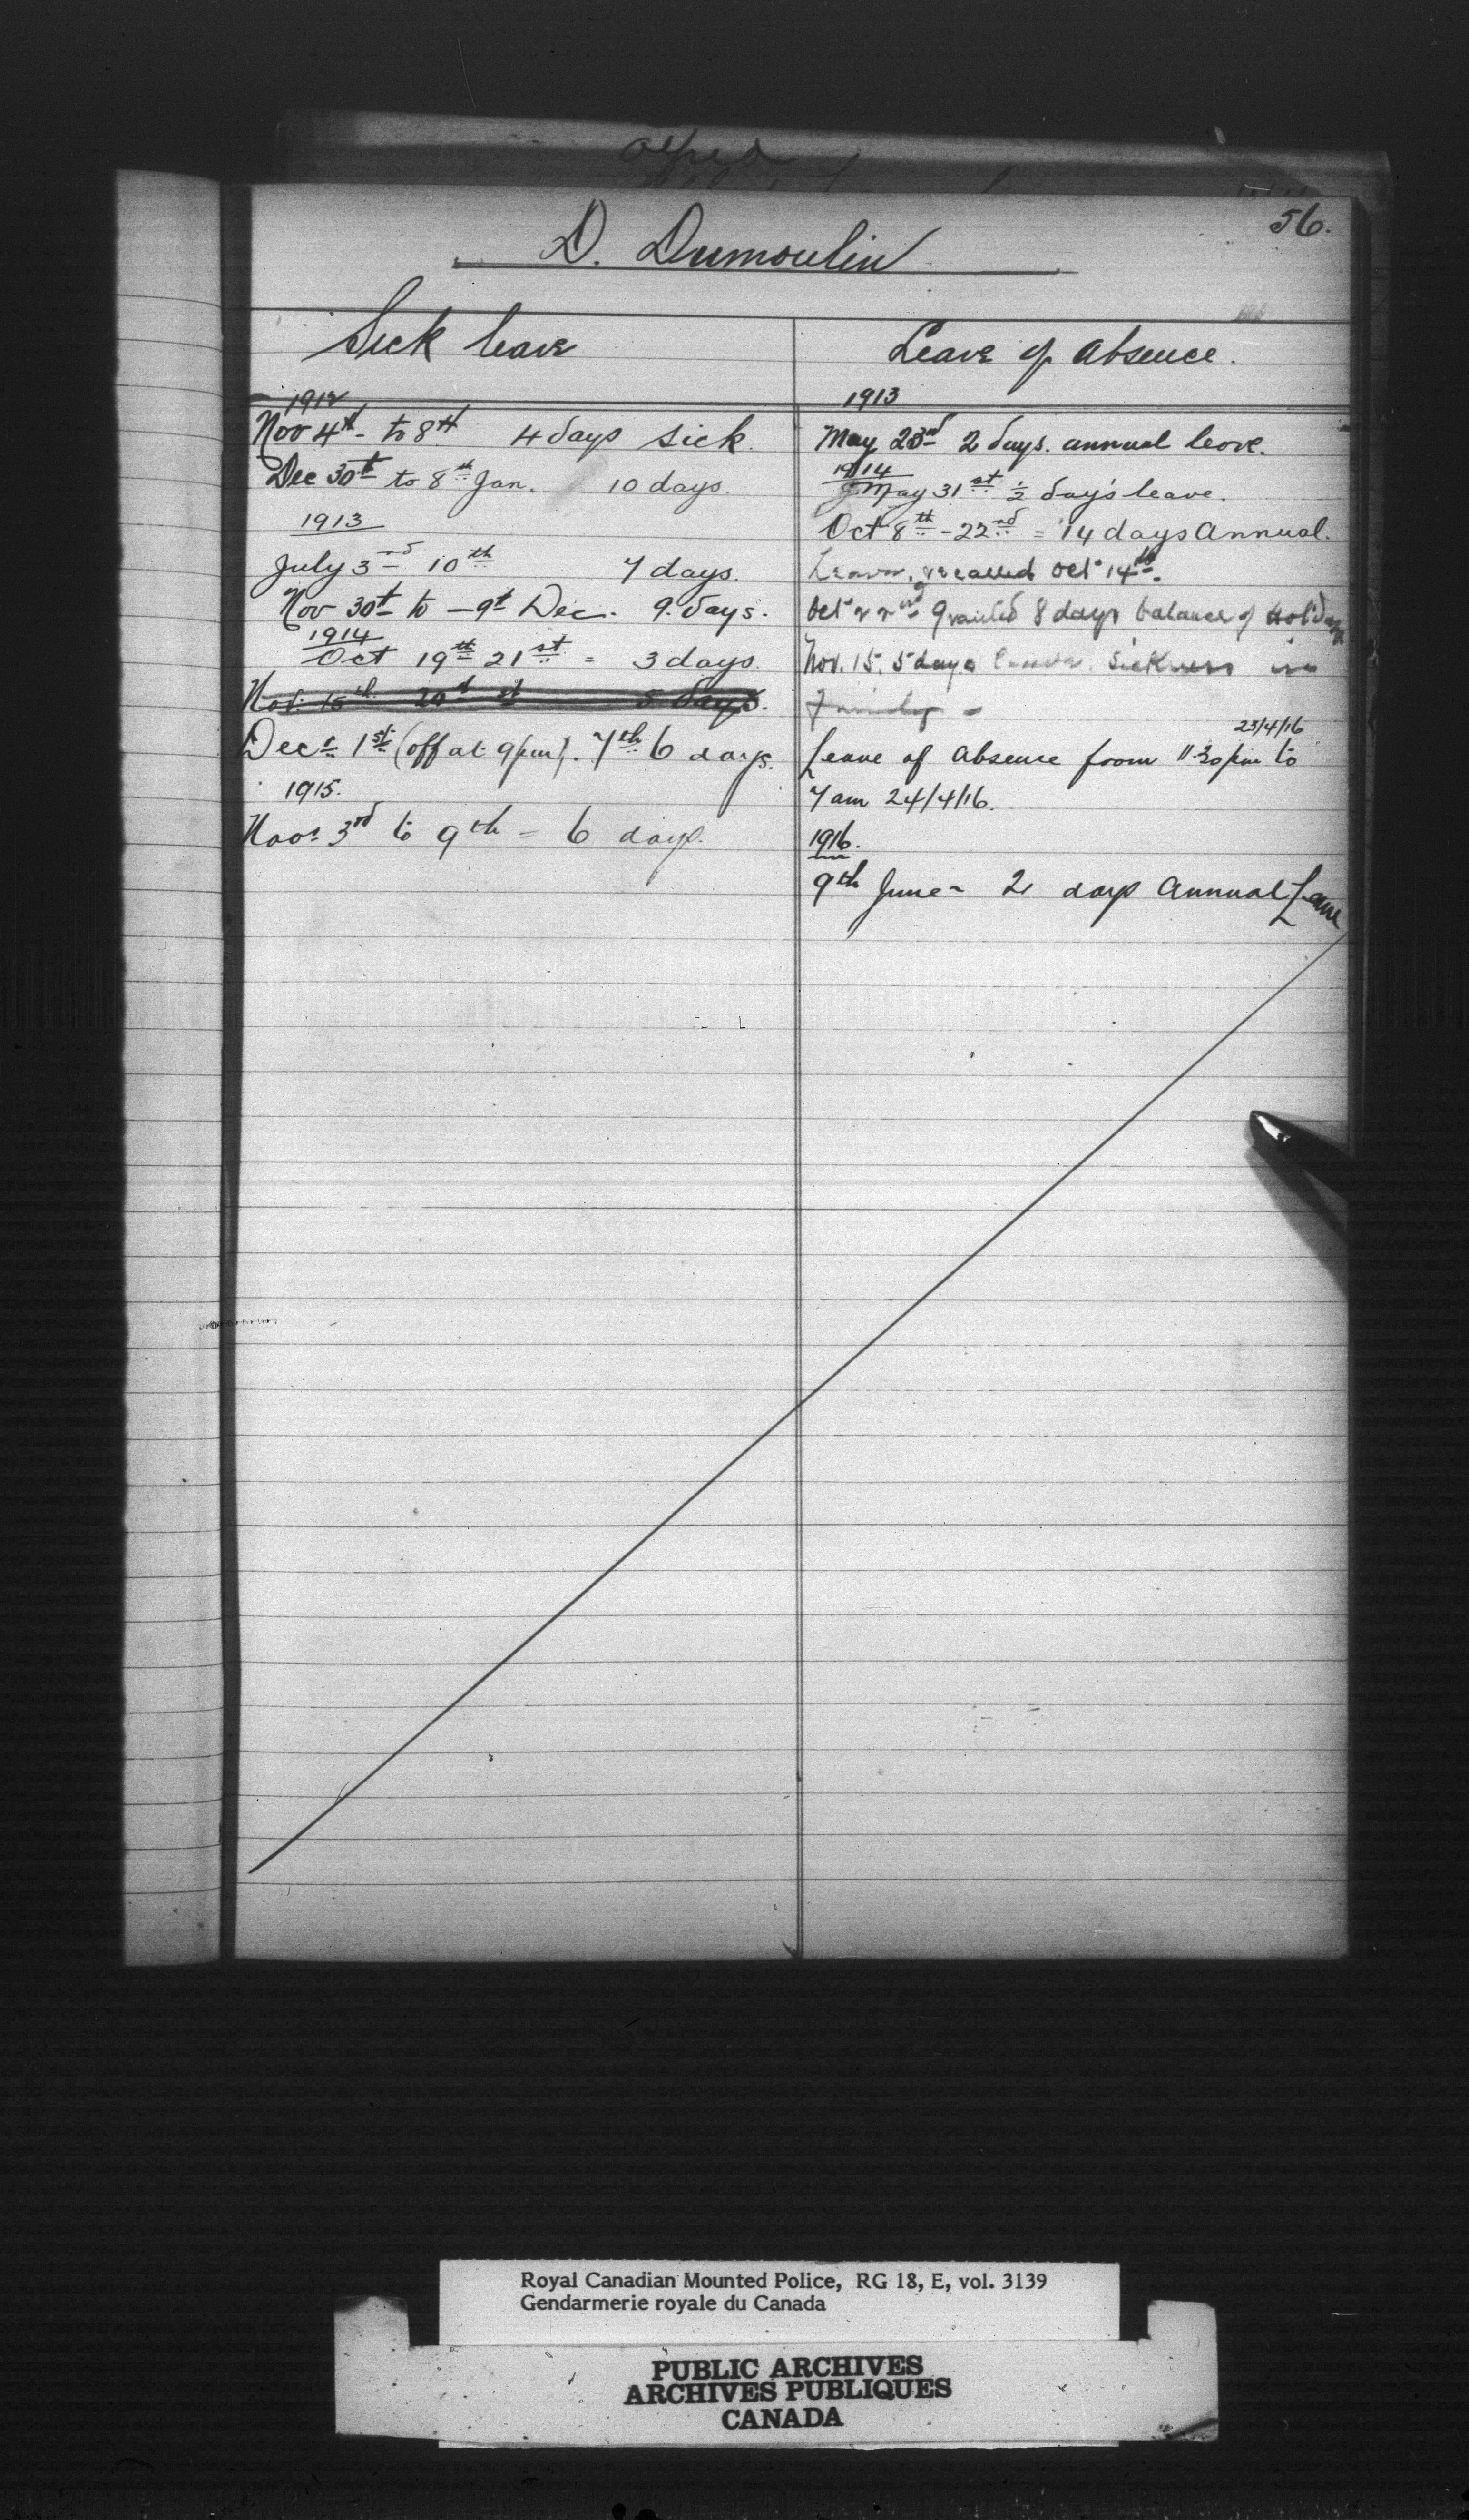 56.
D. Dumoulin
Sick leave
1912
Nov 4th - to 8th 4 days sick.
Dec 30th to 8th Jan. 10 days.
1913
July 3rd 10th 7 days.
Nov 30th to - 9th Dec. 9. days.
1914
Oct 19th 21st = 3 days.
Nov. 15th 20th 5 days.
Decr 1st (off at 9 pm). 7th 6 days.
1915.
Novr 3rd to 9th = 6 days.
Leave of Absence.
1913
May 23rd 2 days. annual leave.
1914
May 31st ½ day's leave.
Oct 8th - 22nd = 14 days Annual.
Leave, recalled Oct 14th.
Oct 22nd Granted 8 days balance of Holidays
Nov. 15. 5 days leave. Sickness in
Family -
23/4/16
Leave of Absence from 11.30 pm to
7 am 24/4/16.
1916.
9th June - 2 days Annual Leave
Royal Canadian Mounted Police, RG 18, E, vol. 3139
Gendarmerie royale du Canada
PUBLIC ARCHIVES
ARCHIVES PUBLIQUES
CANADA